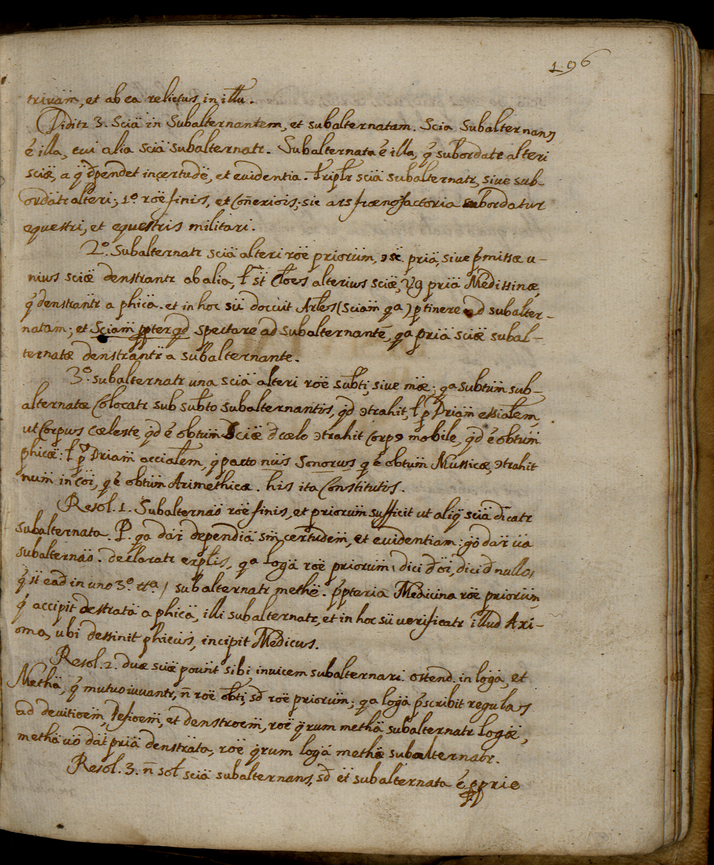 196
trivam, et ab ea relictus, in illu.
Diditr 3. Scia in Subalternantem, et subalternatam. Scia Subalternans
ẽ illa, cui alia scia subalternatr. Subalternata ẽ illa, q̃ subordatr alteri
sciæ, a q̃ dpendet incertude, et evidentia. Triplr scia subalternatr, sive sub-
ordatr alteri; 1º roẽ finis, et Coñexiois; sic ars frænofactoria subordatur
equestri, et equestris militari.
2º Subalternatr scia alteri roẽ priorum, sc pria, sive pmissæ u-
nius sciæ denstrantr ab alia, st Cloes alterius sciæ, vg pria Medissinæ,
q̃ denstrantr a phica. et in hoc su docuit Arles (sciam qa) ptinere ad subalter-
natam; et Sciam ppter qd spectare ad subalternante, qa pria sciæ subal-
ternatæ denstrantr a subalternante.
3º subalternatr una scia alteri roẽ subti, sive mæ; qa subtum sub-
alternatæ Colocatr sub subto subalternantis, qd ɔtrahit, l p Driam essialem,
ut Corpus cæleste, qd ẽ obtum Sciæ d cœlo ɔtrahit corpꝰ mobile, qd ẽ obtum
phicæ: l p Driam accialem, q pacto nus Sonorus q ẽ obtum Mussicæ, ɔtrahit
num in coi, q ẽ obtum Arimethicæ. his ita Constitutis.
Resol. 1. Subalternas roẽ finis, et priorum sufficit ut aliq̃ scia dicatr
subalternata. P. qa datr dependia sm certudem, et evidentiam: go datr va
subalternao. declaratr explis, qa loga roẽ priorum, dici d oi, dici d nullo,
q̃ st ead in uno 3º subalternatr methæ. ppteria Medicina roẽ priorum
q̃ accipit destrata a phica, illi subalternatr, et in hoc su verificatr illud Axi-
oma, ubi dessinit phicus, incipit Medicus.
Resol. 2. duæ sciæ pount sibi invicem subalternari. ostend. in loga, et
Metha, q̃ mutuo iuvantr, ñ roẽ obti, sd roẽ priorum; qa loga pscribit regulas
ad devitioem, Defioem, et denstroem, roẽ qrum metha subalternatr logæ,
metha vo dat pria denstrata, roẽ qrum loga methæ subalternatr.
Resol. 3. ñ sol scia subalternans, sd et subalternata ẽ pprie